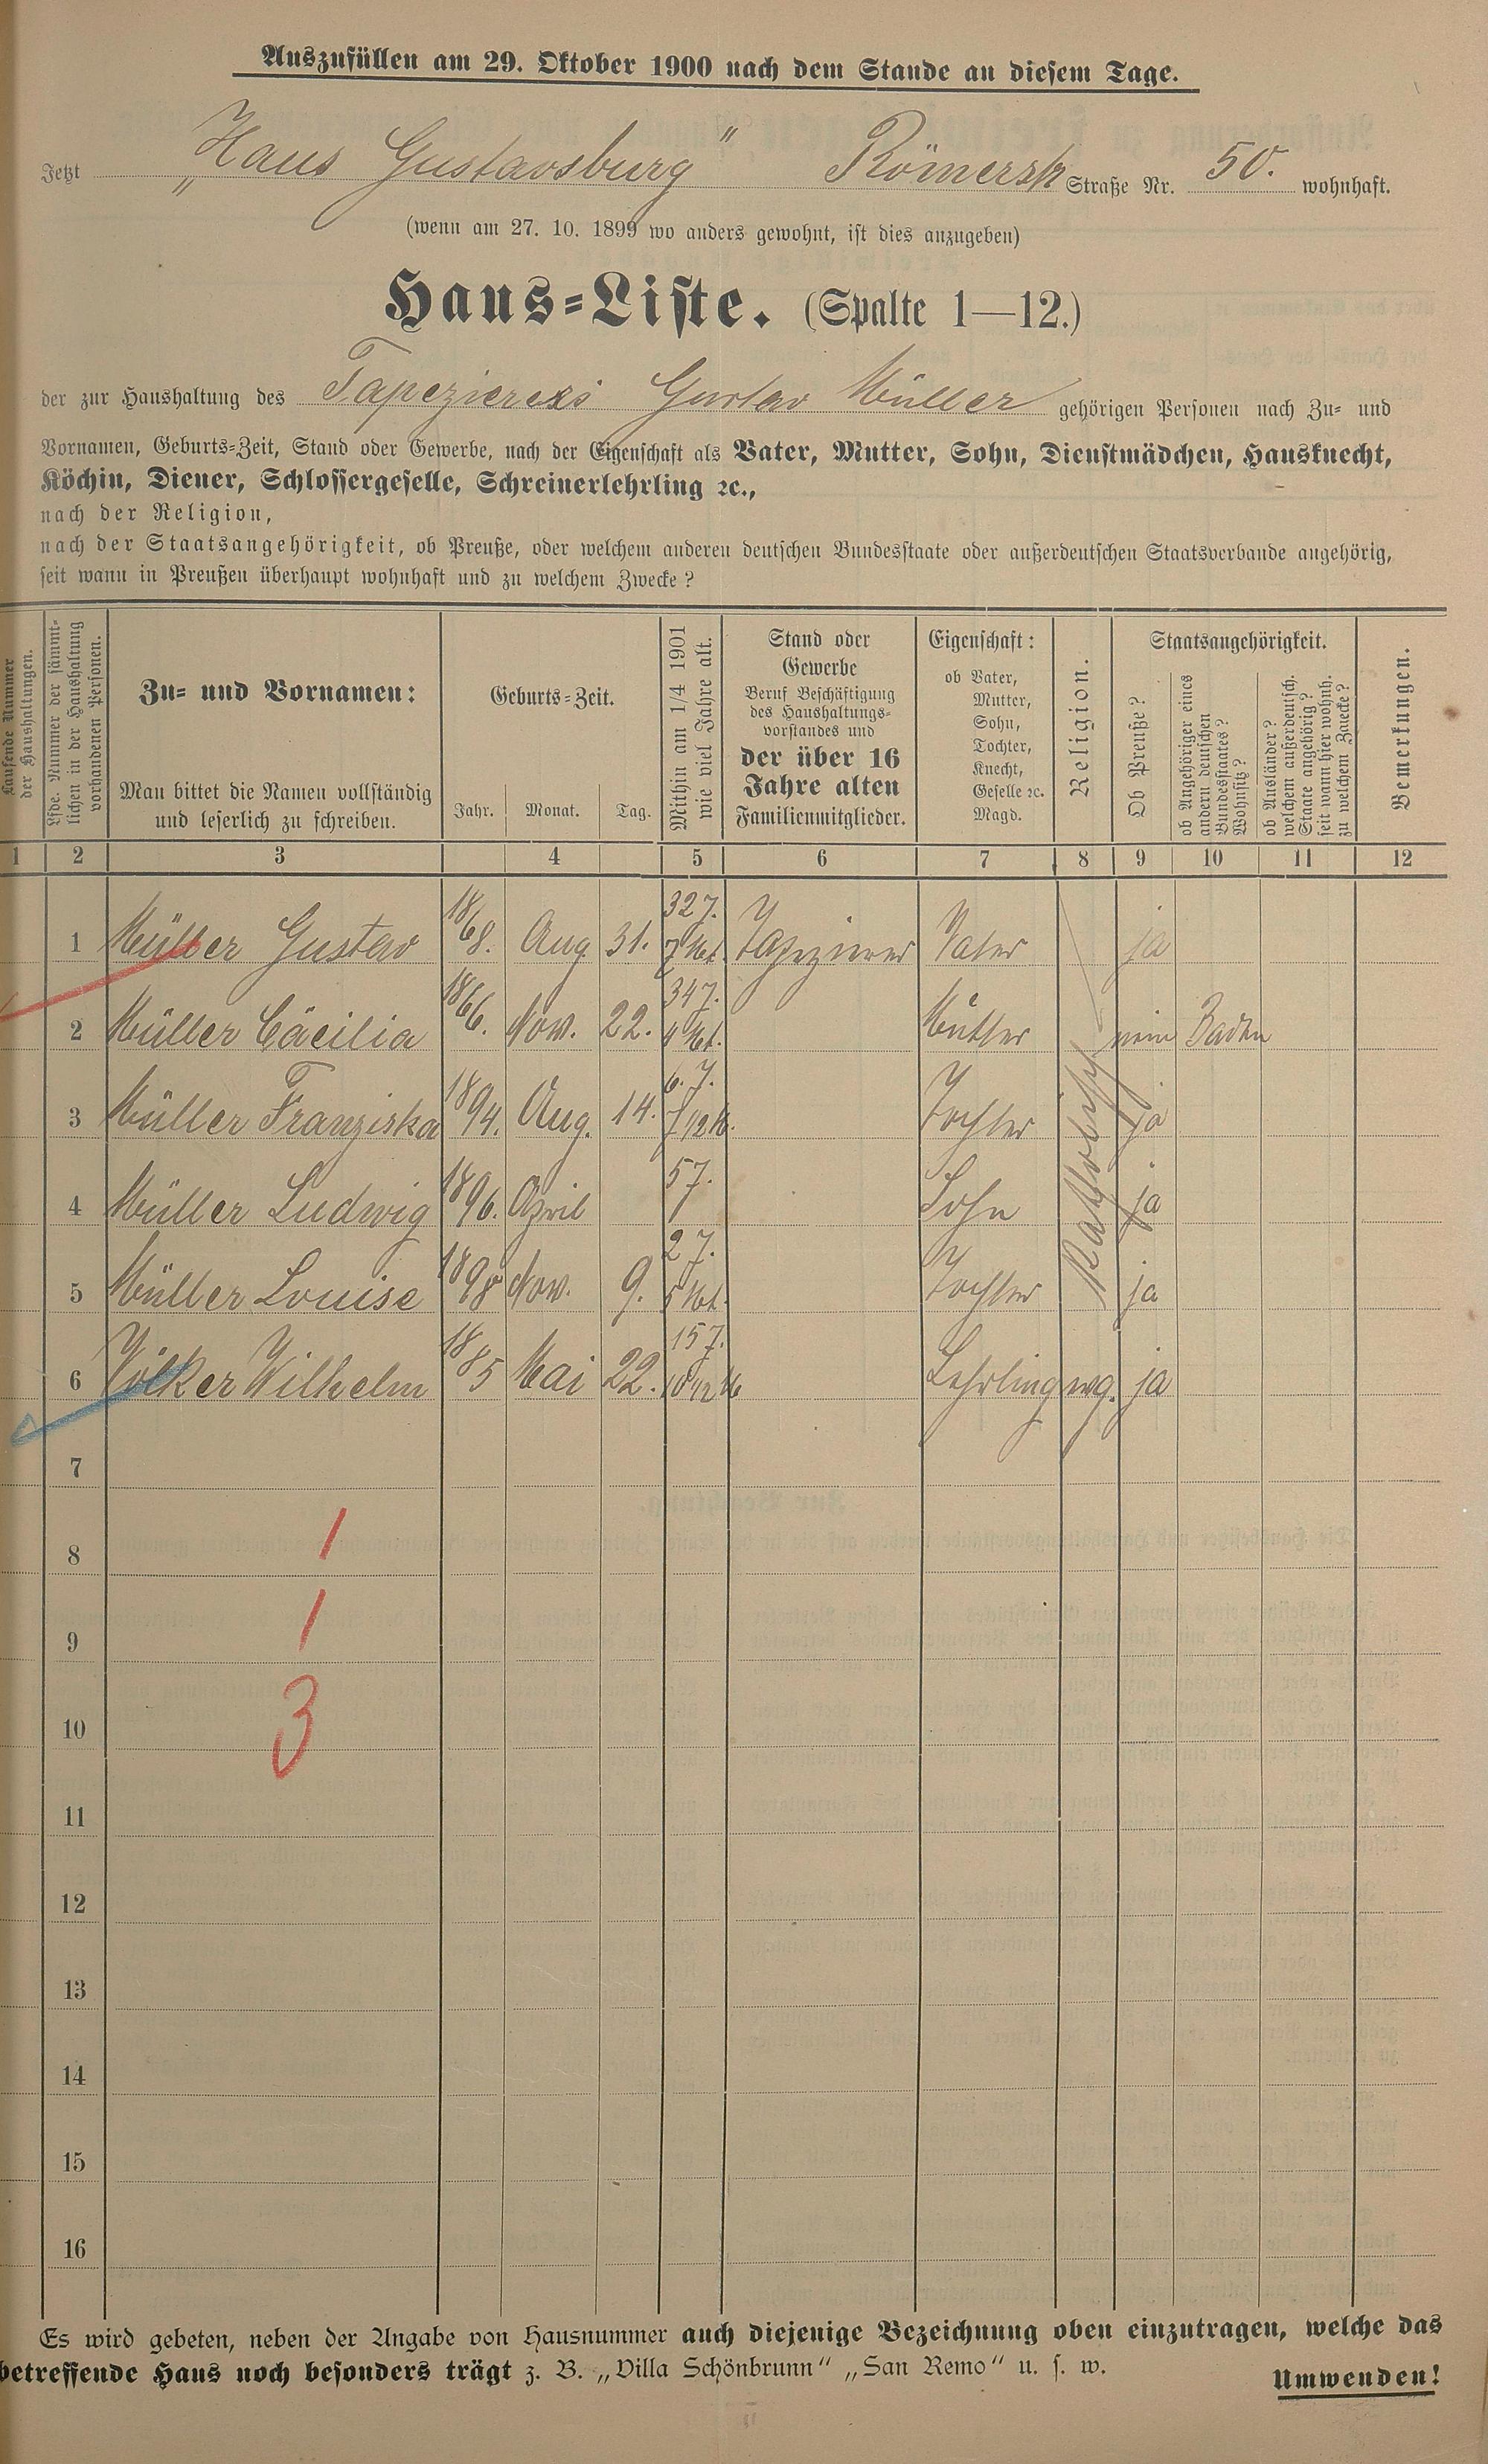 Auszufüllen am 29. Oktober 1900 nach dem Stande an diesem Tage.
Jetzt „Haus Gustavsburg" Römerstr Straße Nr. 50. wohnhaft.
(wenn am 27. 10. 1899 wo anders gewohnt, ist dies anzugeben)
Haus=Liste. (Spalte 1—12.)
der zur Haushaltung des Tapezierers Gustav Müller gehörigen Personen nach Zu= und
Vornamen, Geburts=Zeit, Stand oder Gewerbe, nach der Eigenschaft als Vater, Mutter, Sohn, Dienstmädchen, Hausknecht,
Köchin, Diener, Schlossergeselle, Schreinerlehrling ꝛc.,
nach der Religion,
nach der Staatsangehörigkeit, ob Preuße, oder welchem anderen deutschen Bundesstaate oder außerdeutschen Staatsverbande angehörig,
seit wann in Preußen überhaupt wohnhaft und zu welchem Zwecke?
Laufende Nummer
der Haushaltungen.
Lfde. Nummer der sämmt=
lichen in der Haushaltung
vorhandenen Personen.
Zu= und Vornamen:
Man bittet die Namen vollständig
und leserlich zu schreiben.
Geburts=Zeit.
Jahr. Monat. Tag.
Mithin am 1/4 1901
wie viel Jahre alt.
Stand oder
Gewerbe
Beruf Beschäftigung
des Haushaltungs=
vorstandes und
der über 16
Jahre alten
Familienmitglieder.
Eigenschaft:
ob Vater,
Mutter,
Sohn,
Tochter,
Knecht,
Geselle ꝛc.
Magd.
Religion.
Staatsangehörigkeit.
Ob Preuße?
ob Angehöriger eines
andern deutschen
Bundesstaates?
Wohnsitz?
ob Ausländer?
welchem außerdeutsch.
Staate angehörig?
seit wann hier wohnh.
zu welchem Zwecke?
Bemerkungen.
1 2 3 4 5 6 7 8 9 10 11 12
1 Müller Gustav 1868. Aug. 31. 32 J. 7 Mt. Tapezierer Vater ja
2 Müller Cäcilia 1866. Nov. 22. 34 J. 4 Mt. Mutter nein Baden
3 Müller Franziska 1894. Aug. 14. 6. J. 7/12 M. Tochter Katholisch ja
4 Müller Ludwig 1896. April 5 J. Sohn ja
5 Müller Louise 1898 Nov. 9. 2 J. 5 Mt. Tochter ja
6 Völker Wilhelm 1885 Mai 22. 15 J. 10/12 M Lehrling ja
7
8 1
9 1
10 3
11
12
13
14
15
16
Es wird gebeten, neben der Angabe von Hausnummer auch diejenige Bezeichnung oben einzutragen, welche das
betreffende Haus noch besonders trägt z. B. „Villa Schönbrunn" „San Remo" u. s. w.
Umwenden!